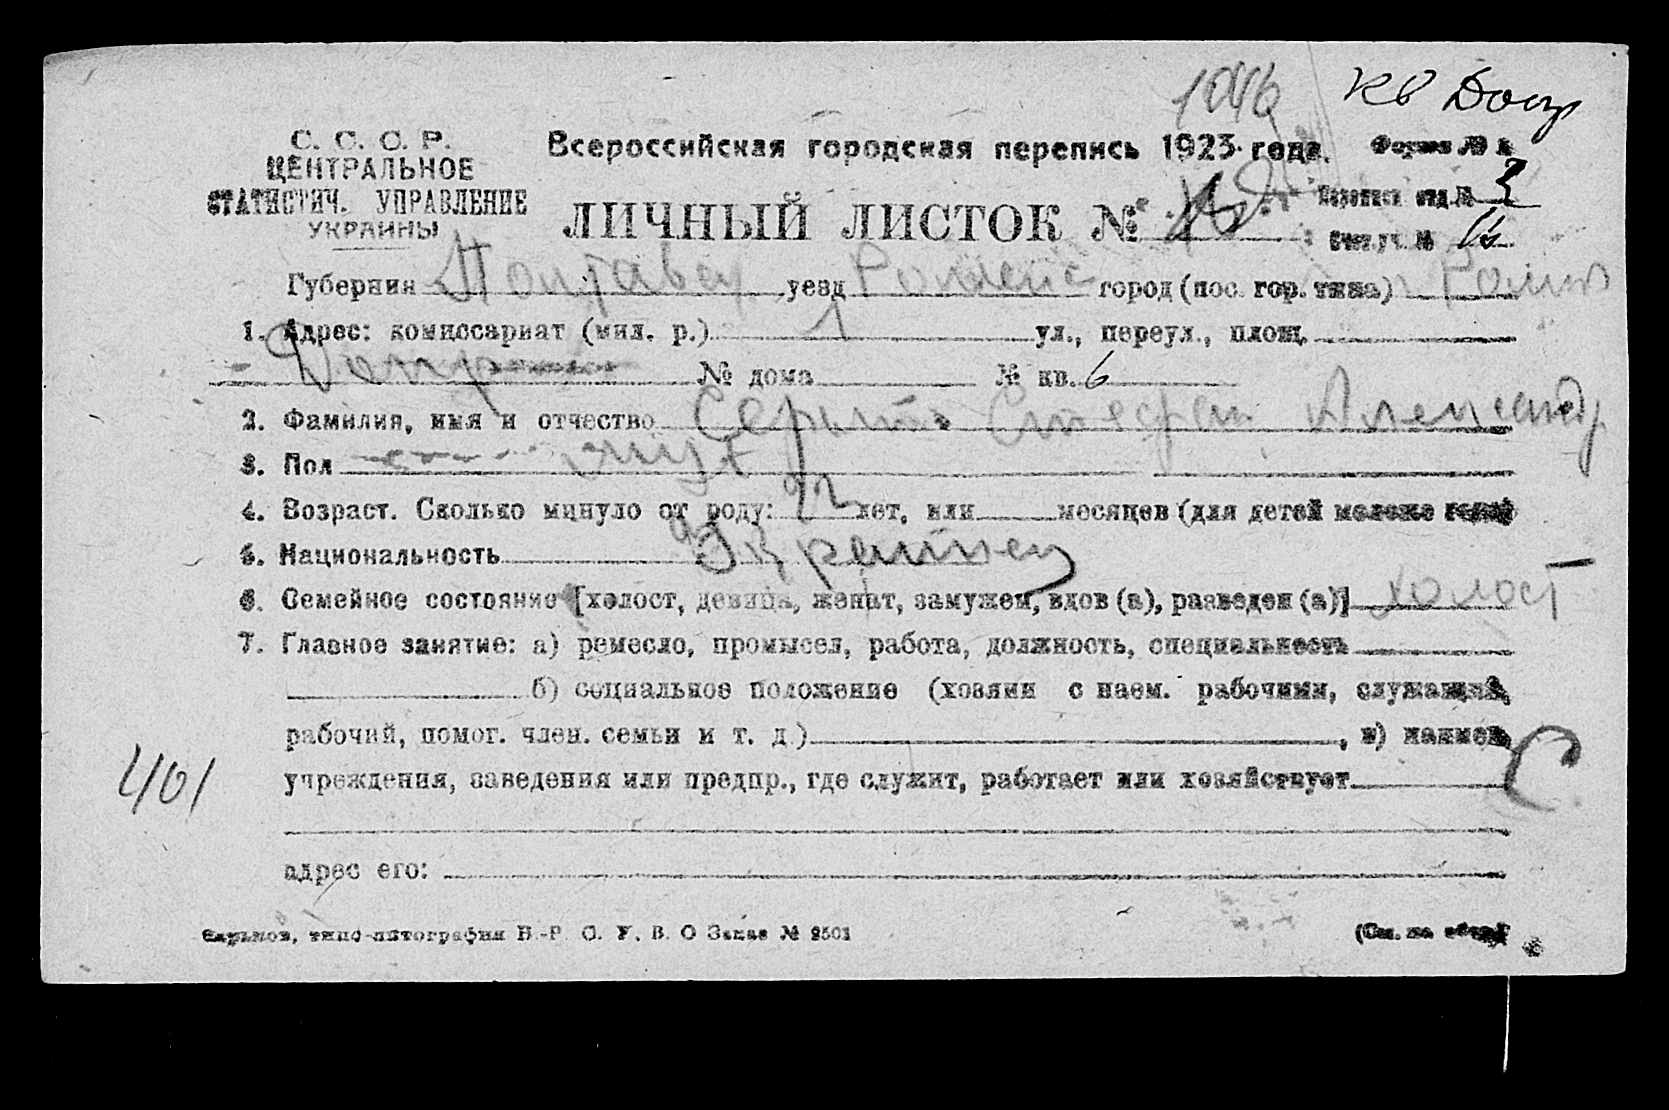 1046
С. С. С. Р.
ЦЕНТРАЛЬНОЕ
СТАТИСТИЧ. УПРАВЛЕНИЕ
УКРАИНЫ
Всероссийская городская перепись 1923 года.
Форма № 
ЛИЧНЫЙ ЛИСТОК №
отд. № 3
Счет. уч. №
Губерния Полтавск уезд Роменс город (пос. гор. типа) Ромны
1. Адрес: комиссариат (мил. р.) 1 ул., переул., площ.
№ дома № кв. 6
2. Фамилия, имя и отчество Стефан Александр
3. Пол муж
4. Возраст. Сколько минуло от роду: 22 лет, или месяцев (для детей моложе года)
5. Национальность Украинец
6. Семейное состояние [холост, девица, женат, замужем, вдов (а), разведен (а)] холост
7. Главное занятие: а) ремесло, промысел, работа, должность, специальность
б) социальное положение (хозяин с наем. рабочими, служащий,
рабочий, помог. член. семьи и т. д.) , в) наимен.
С
401
учреждения, заведения или предпр., где служит, работает или хозяйствует
адрес его:
Харьков, типо-литография В.-Р. С. У. В. О Заказ № 2501
(См. на обор.)